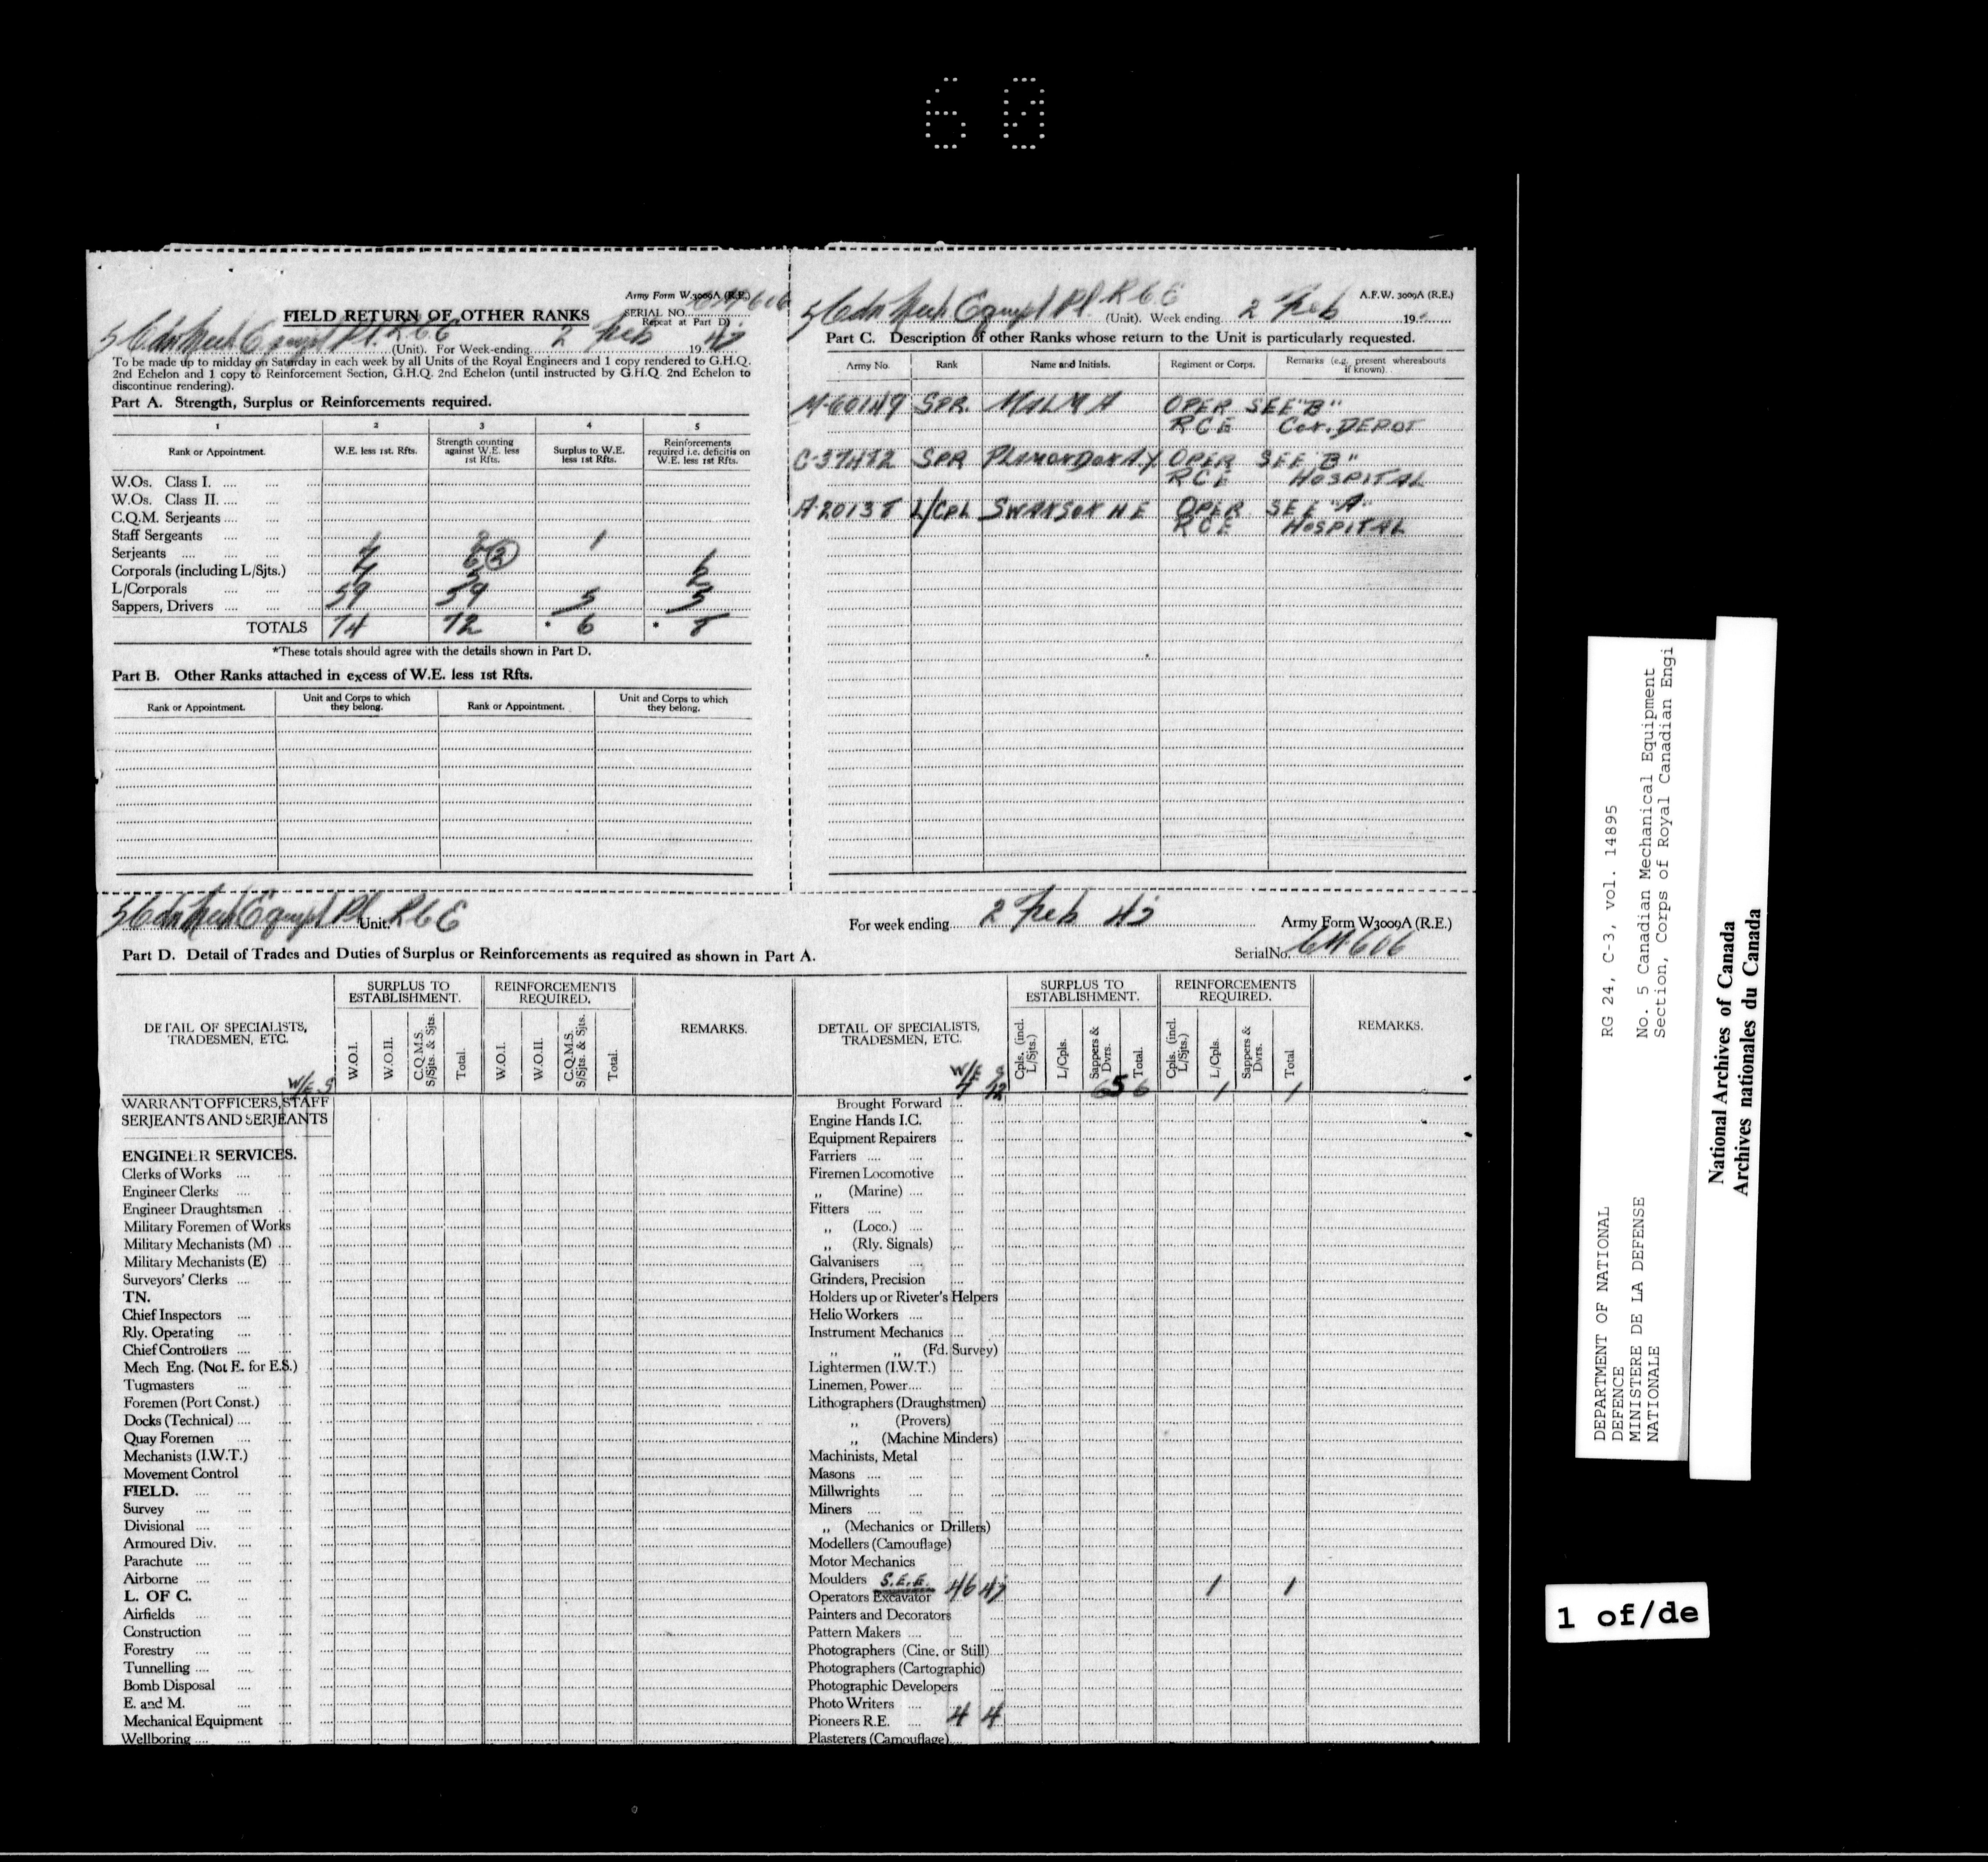 60
Army Form W.3009A (R.E.)
FIELD RETURN OF OTHER RANKS
SERIAL NO.
Repeat at Part D)
5 Cdn Mech Eqmpt Pl. RCE (Unit). For Week-ending 2 Feb 1945
To be made up to midday on Saturday in each week by all Units of the Royal Engineers and 1 copy rendered to G.H.Q.
2nd Echelon and 1 copy to Reinforcement Section, G.H.Q. 2nd Echelon (until instructed by G.H.Q. 2nd Echelon to
discontinue rendering).
Part A. Strength, Surplus or Reinforcements required.
1 2 3 4 5
Rank or Appointment. W.E. less 1st. Rfts. Strength counting against W.E. less 1st Rfts. Surplus to W.E. less 1st Rfts. Reinforcements required i.e. deficits on W.E. less 1st Rfts.
W.Os. Class I.
W.Os. Class II.
C.Q.M. Serjeants
Staff Sergeants
Serjeants 1
Corporals (including L/Sjts.)
L/Corporals
Sappers, Drivers 59 59 5 5
TOTALS 74 72 * 6 * 8
*These totals should agree with the details shown in Part D.
Part B. Other Ranks attached in excess of W.E. less 1st Rfts.
Rank or Appointment. Unit and Corps to which they belong. Rank or Appointment. Unit and Corps to which they belong.
A.F.W. 3009A (R.E.)
5 Cdn Mech Eqmpt Pl. RCE (Unit). Week ending 2 Feb 19
Part C. Description of other Ranks whose return to the Unit is particularly requested.
Army No. Rank Name and Initials. Regiment or Corps. Remarks (e.g., present whereabouts if known).
M-60149 SPR. MALM A OPER SEE "B"
RCE Cor. DEPOT
SPR PLAMONDON A Y OPER SEE "B"
RCE HOSPITAL
A-20138 L/CPL SWANSON H E OPER SEE "A"
RCE HOSPITAL
5 Cdn Mech Eqmpt Pl Unit. RCE For week ending 2 Feb 45 Army Form W3009A (R.E.)
Part D. Detail of Trades and Duties of Surplus or Reinforcements as required as shown in Part A.
Serial No. 606
SURPLUS TO ESTABLISHMENT. REINFORCEMENTS REQUIRED.
DETAIL OF SPECIALISTS, TRADESMEN, ETC.
W.O.I. W.O.II. C.Q.M.S. S/Sjts. & Sjts. Total. W.O.I. W.O.II. C.Q.M.S. S/Sjts. & Sjts. Total. REMARKS.
W/E S
WARRANT OFFICERS, STAFF
SERJEANTS AND SERJEANTS
ENGINEER SERVICES.
Clerks of Works
Engineer Clerks
Engineer Draughtsmen
Military Foremen of Works
Military Mechanists (M)
Military Mechanists (E)
Surveyors' Clerks
TN.
Chief Inspectors
Rly. Operating
Chief Controllers
Mech Eng. (Not E. for E.S.)
Tugmasters
Foremen (Port Const.)
Docks (Technical)
Quay Foremen
Mechanists (I.W.T.)
Movement Control
FIELD.
Survey
Divisional
Armoured Div.
Parachute
Airborne
L. OF C.
Airfields
Construction
Forestry
Tunnelling
Bomb Disposal
E. and M.
Mechanical Equipment
Wellboring
SURPLUS TO ESTABLISHMENT. REINFORCEMENTS REQUIRED.
DETAIL OF SPECIALISTS, TRADESMEN, ETC.
Cpls. (incl. L/Sjts.) L/Cpls. Sappers & Dvrs. Total. Cpls. (incl. L/Sjts.) L/Cpls. Sappers & Dvrs. Total REMARKS.
W/E S
Brought Forward 1 1
Engine Hands I.C.
Equipment Repairers
Farriers
Firemen Locomotive
„ (Marine)
Fitters
„ (Loco.)
„ (Rly. Signals)
Galvanisers
Grinders, Precision
Holders up or Riveter's Helpers
Helio Workers
Instrument Mechanics
„ „ (Fd. Survey)
Lightermen (I.W.T.)
Linemen, Power
Lithographers (Draughstmen)
„ (Provers)
„ (Machine Minders)
Machinists, Metal
Masons
Millwrights
Miners
„ (Mechanics or Drillers)
Modellers (Camouflage)
Motor Mechanics
Moulders
S.E.E.
Operators Excavator 46 45 1 1
Painters and Decorators
Pattern Makers
Photographers (Cine, or Still)
Photographers (Cartographic)
Photographic Developers
Photo Writers
Pioneers R.E. 4 4
Plasterers (Camouflage)
DEPARTMENT OF NATIONAL
DEFENCE
MINISTERE DE LA DEFENSE
NATIONALE
RG 24, C-3, vol. 14895
No. 5 Canadian Mechanical Equipment
Section, Corps of Royal Canadian Engi
National Archives of Canada
Archives nationales du Canada
1 of/de